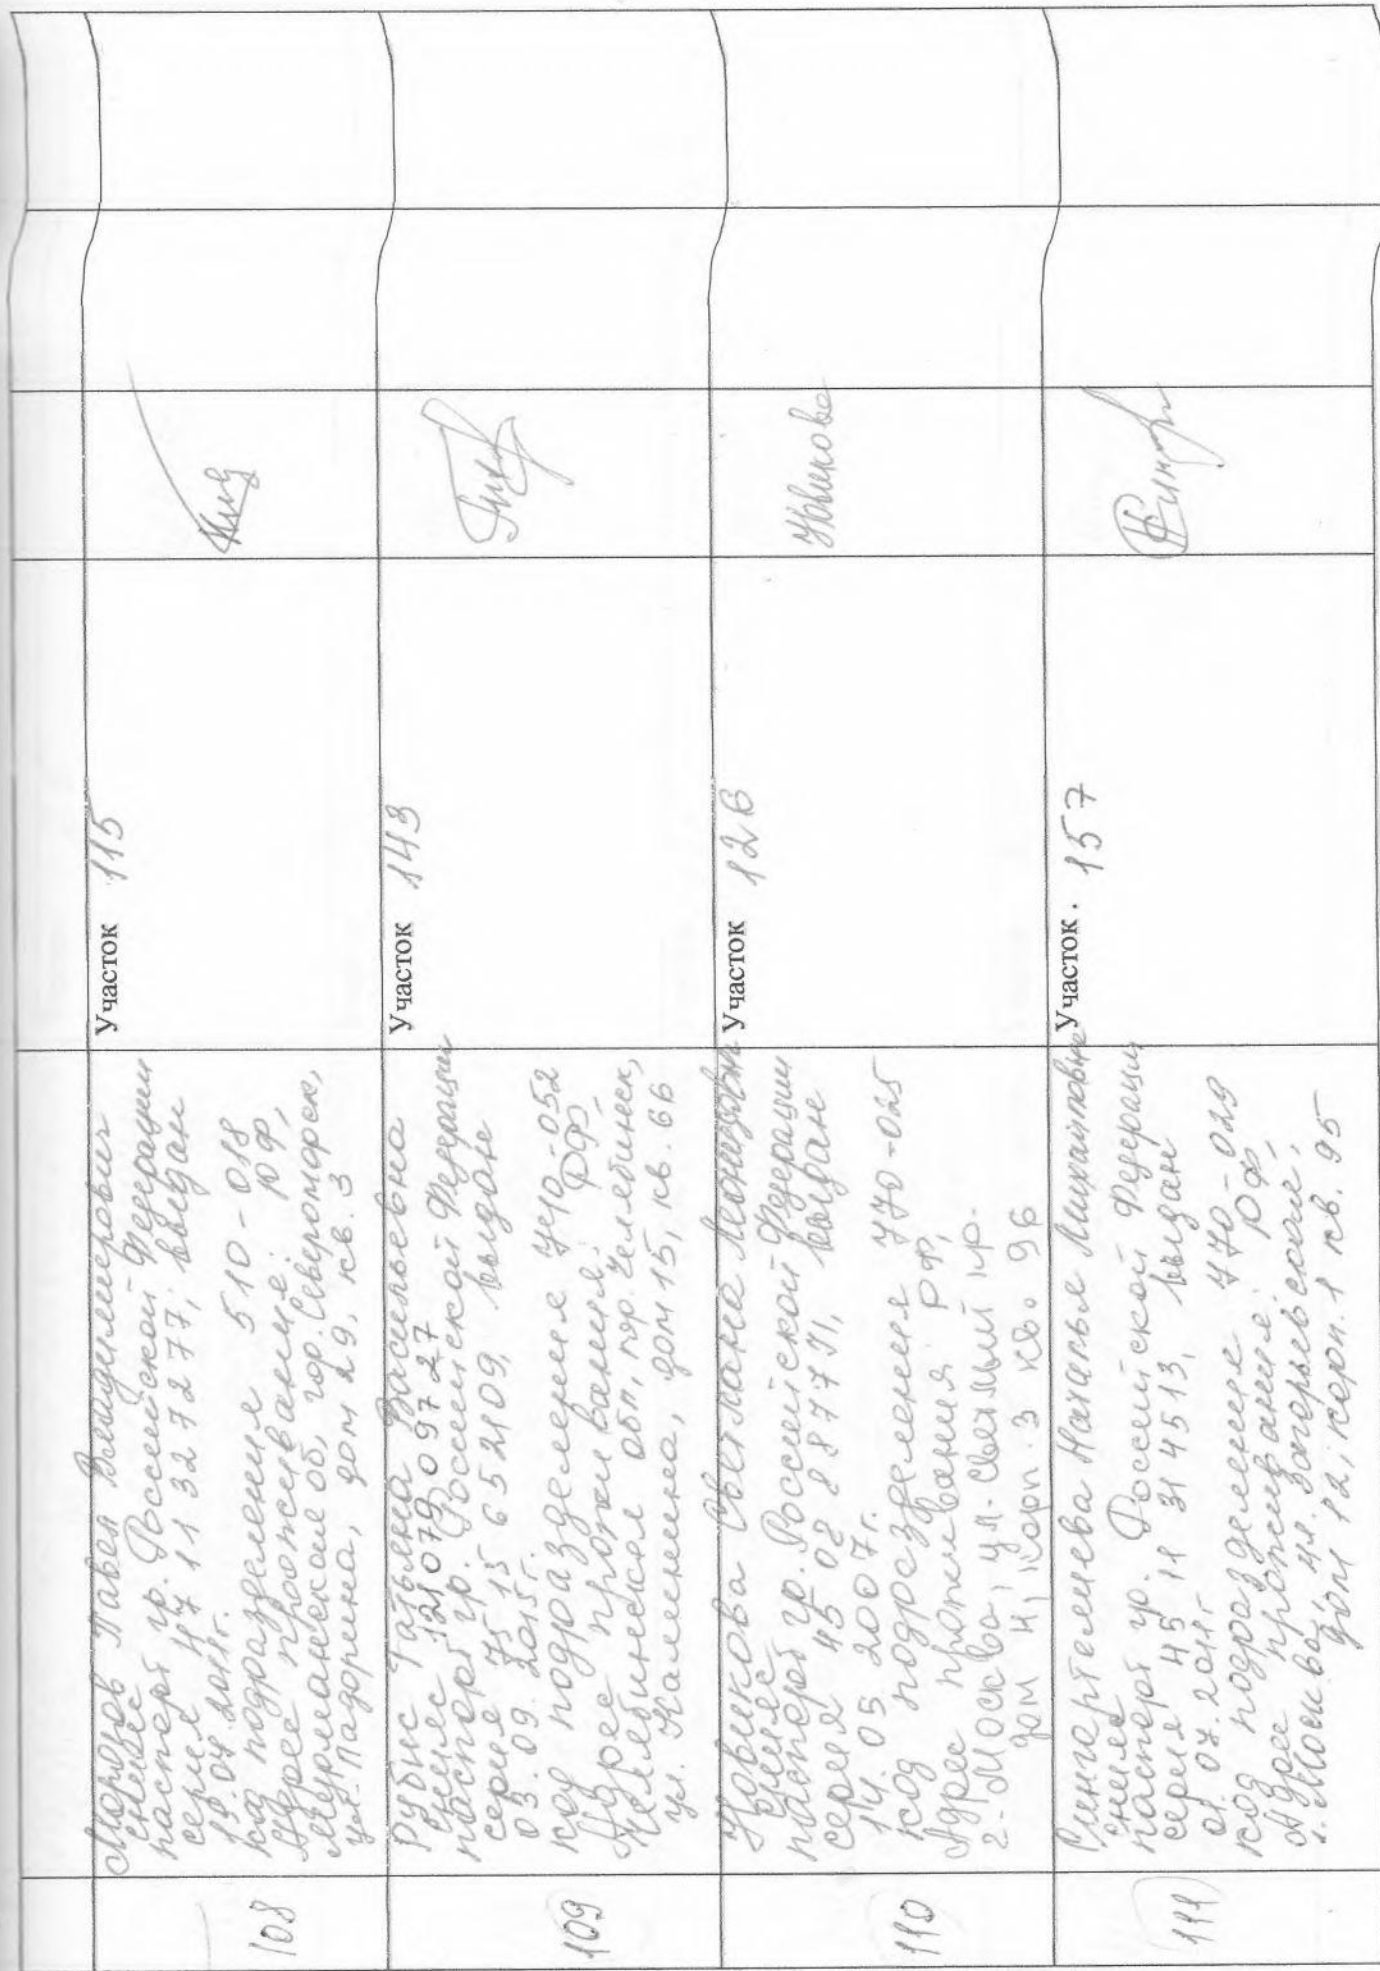 108
Морозов Павел Владимирович
СНИЛС
паспорт гр. Российской Федерации
серия 47 11 327277, выдан
19.04.2011г.
код подразделения 510-018
Адрес проживания: РФ,
Мурманская об, гор. Североморск,
ул. Падорина, дом 29, кв. 3
Участок 115
109
Рубис Татьяна Васильевна
СНИЛС 121 079 097 27
паспорт гр. Российской Федерации
серия 75 15 652109, выдан
03.09.2015г.
код подразделения 740-052
Адрес проживания: РФ,
Челябинская обл, гор. Челябинск,
ул. Калинина, дом 15, кв. 66
Участок 143
110
Новикова Светлана Леонидовна
СНИЛС
паспорт гр. Российской Федерации
серия 45 08 887731, выдан
14.05.2007г.
код подразделения 770-025
Адрес проживания: РФ,
г. Москва, ул.
дом 4, корп. 3 кв. 96
Участок 126
Новикова
111
Михайловна
СНИЛС
паспорт гр. Российской Федерации
серия 45 11 314513, выдан
01.07.2011г
код подразделения 770-029
Адрес проживания: РФ,
г. Москва, ул. Загорьевская,
дом 12, корп. 1 кв. 95
Участок. 157